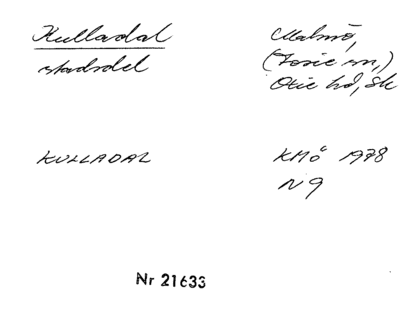 Kulladal
stadsdel
Malmö,
(Fosie sn,)
Oxie hd, Sk
KULLADAL
KMö 1978
N9
Nr 21633